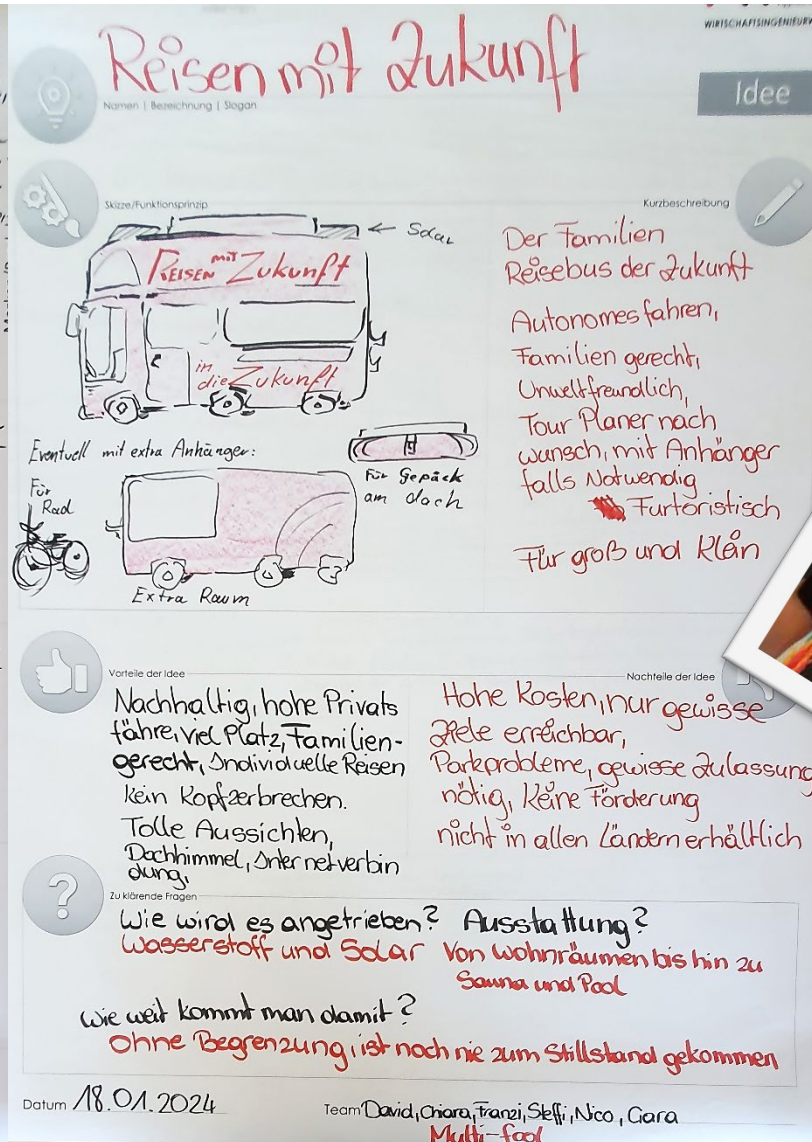 WIRTSCHAFTSINGENIEURW
Reisen mit Zukunft
Namen | Bezeichnung | Slogan
Idee
Skizze/Funktionsprinzip
← Solar
REISEN MIT Zukunft
in
die Zukunft
Eventuell mit extra Anhänger:
Für
Rad
Extra Raum
Für Gepäck
am dach
Kurzbeschreibung
Der Familien
Reisebus der Zukunft
Autonomes fahren,
Familien gerecht,
Unweltfreundlich,
Tour Planer nach
wunsch, mit Anhänger
falls Notwendig
Furtoristisch
Für groß und klein
Vorteile der Idee
Nachhaltig, hohe Privats
fähre, viel Platz, Familien-
gerecht, Individuelle Reisen
kein Kopfzerbrechen.
Tolle Aussichten,
Dachhimmel, Internetverbin
dung,
Nachteile der Idee
Hohe Kosten, nur gewisse
Ziele erreichbar,
Parkprobleme, gewisse Zulassung
nötig, keine Förderung
nicht in allen Ländern erhältlich
Zu klärende Fragen
Wie wird es angetrieben? Ausstattung?
Wasserstoff und Solar Von Wohnräumen bis hin zu
Sauna und Pool
Wie weit kommt man damit?
Ohne Begrenzung, ist noch nie zum Stillstand gekommen
Datum 18.01.2024
Team David, Chiara, Franzi, Steffi, Nico, Ciara
Multi-fool